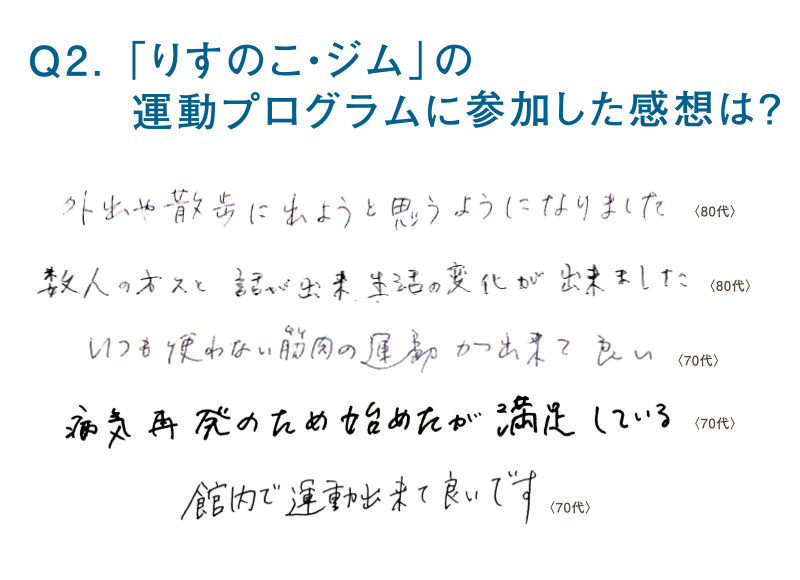 Q2.「りすのこ・ジム」の
運動プログラムに参加した感想は?
外出や散歩に出ようと思うようになりました 〈80代〉
数人の方々と 話が出来 生活の変化が 出来ました 〈80代〉
いつも使わない筋肉の運動が出来て良い 〈70代〉
病気再発のため始めたが満足している 〈70代〉
館内で運動出来て良いです 〈70代〉